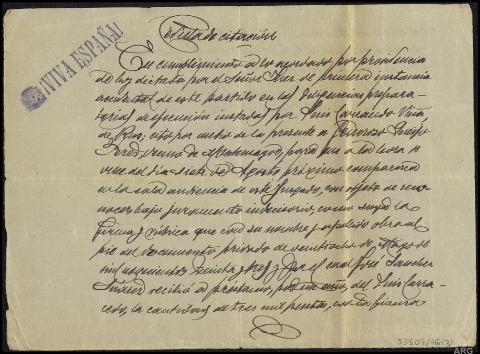 ¡VIVA ESPAÑA!
Cédula de citación
En cumplimiento a lo acordado por providencia
de hoy dictada por el Señor Juez de primera instancia
accidental de este partido en las diligencias prepara-
torias de ejecución instadas por Luis Carracedo
de Rua; cito por medio de la presente a
Perez, vecino de para que a las
once del dia siete de Agosto próximo comparezca
a la sala audiencia de este Juzgado, con objeto de reco-
nocer bajo juramento indecisorio, como suya la
firma y rúbrica que con su nombre y apellido obra al
pie del documento privado de veintidos de Mayo de
mil novecientos treinta y tres, y por el cual José
recibió a préstamo, por un año, del Luis Carra-
cedo, la cantidad de tres mil pesetas, con la fianza
33309/46(2)
ARG